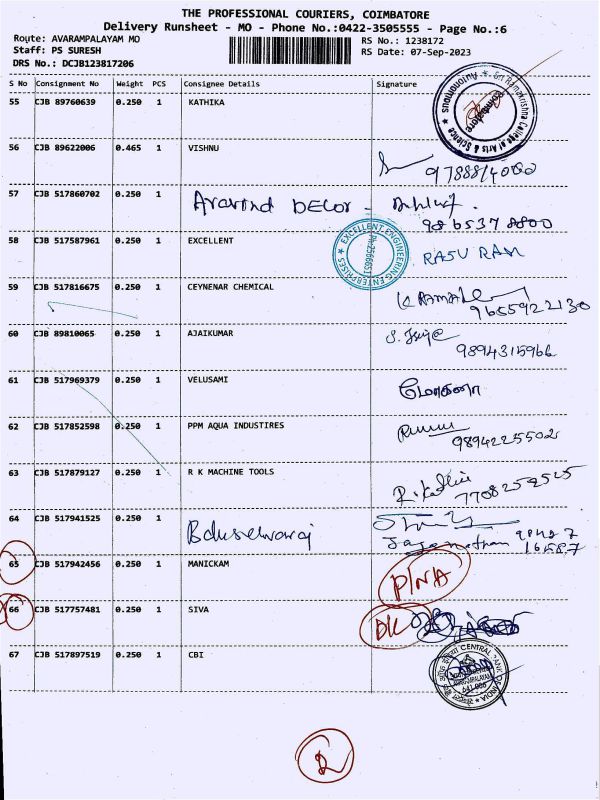 THE PROFESSIONAL COURIERS, COIMBATORE
Delivery Runsheet - MO - Phone No.:0422-3505555 - Page No.:6
Route: AVARAMPALAYAM MO RS No.: 1238172
Staff: PS SURESH RS Date: 07-Sep-2023
DRS No.: DCJB123817206
S No Consignment No Weight PCS Consignee Details Signature
55 CJB 89760639 0.250 1 KATHIKA
Sri Ramakrishna College of Arts & Science ★ Autonomous ★ Coimbatore
56 CJB 89622006 0.465 1 VISHNU
57 CJB 517860702 0.250 1 Aravind DECOR -
986537 8800
58 CJB 517587961 0.250 1 EXCELLENT RASU RAM
EXCELLENT ENGINEERING ENTERPRISES ★
59 CJB 517816675 0.250 1 CEYNENAR CHEMICAL
9655922130
60 CJB 89810065 0.250 1 AJAIKUMAR
9894315966
61 CJB 517969379 0.250 1 VELUSAMI மோகனா
62 CJB 517852598 0.250 1 PPM AQUA INDUSTIRES
9894225502
63 CJB 517879127 0.250 1 R K MACHINE TOOLS
7708252525
64 CJB 517941525 0.250 1 Jaganathan
65 CJB 517942456 0.250 1 MANICKAM P/NA
66 CJB 517757481 0.250 1 SIVA DK
67 CJB 517897519 0.250 1 CBI
CENTRAL BANK OF INDIA
2